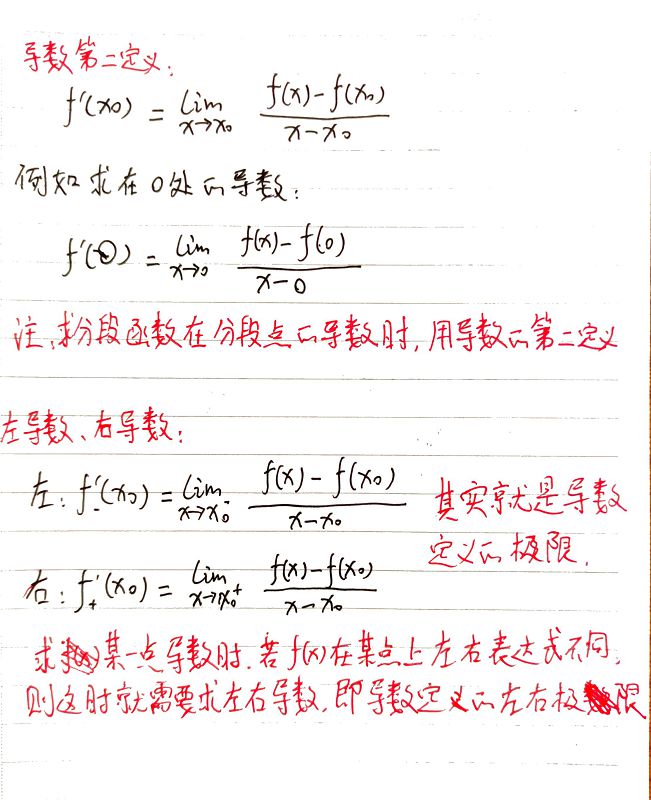 导数第二定义:
f'(x0) = lim x→x0 (f(x)-f(x0))/(x-x0)
例如求在0处的导数:
f'(0) = lim x→0 (f(x)-f(0))/(x-0)
注,求分段函数在分段点的导数时,用导数的第二定义
左导数、右导数:
左: f-'(x0) = lim x→x0- (f(x)-f(x0))/(x-x0)
其实就是导数
定义的极限.
右: f+'(x0) = lim x→x0+ (f(x)-f(x0))/(x-x0)
求某一点导数时.若f(x)在某点上左右表达式不同,
则这时就需要求左右导数.即导数定义的左右极限